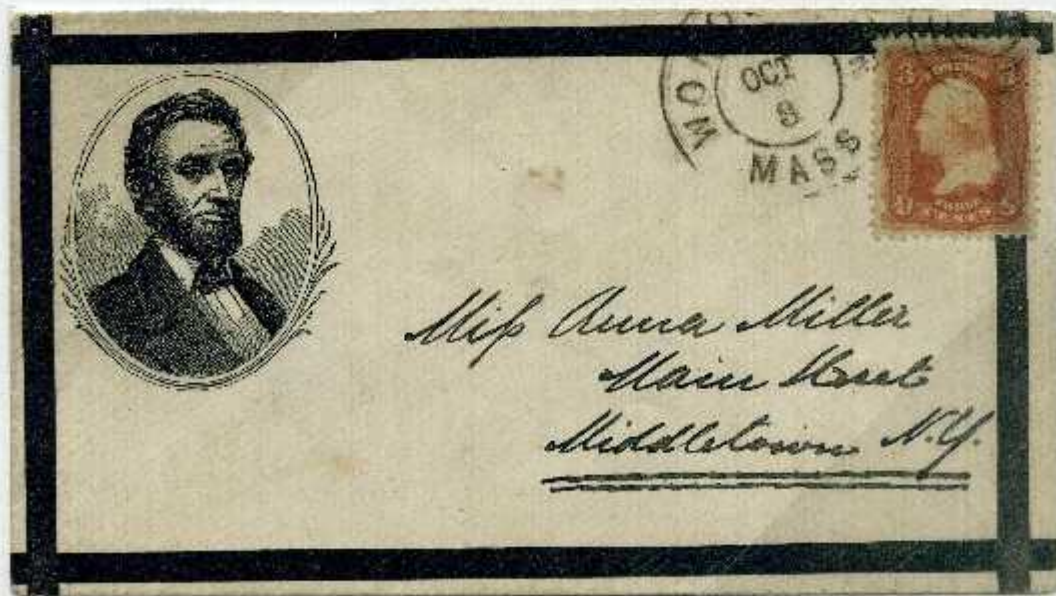 OCT
8
MASS
3
Miſs Anna Miller
Main Street
Middletown N.Y.